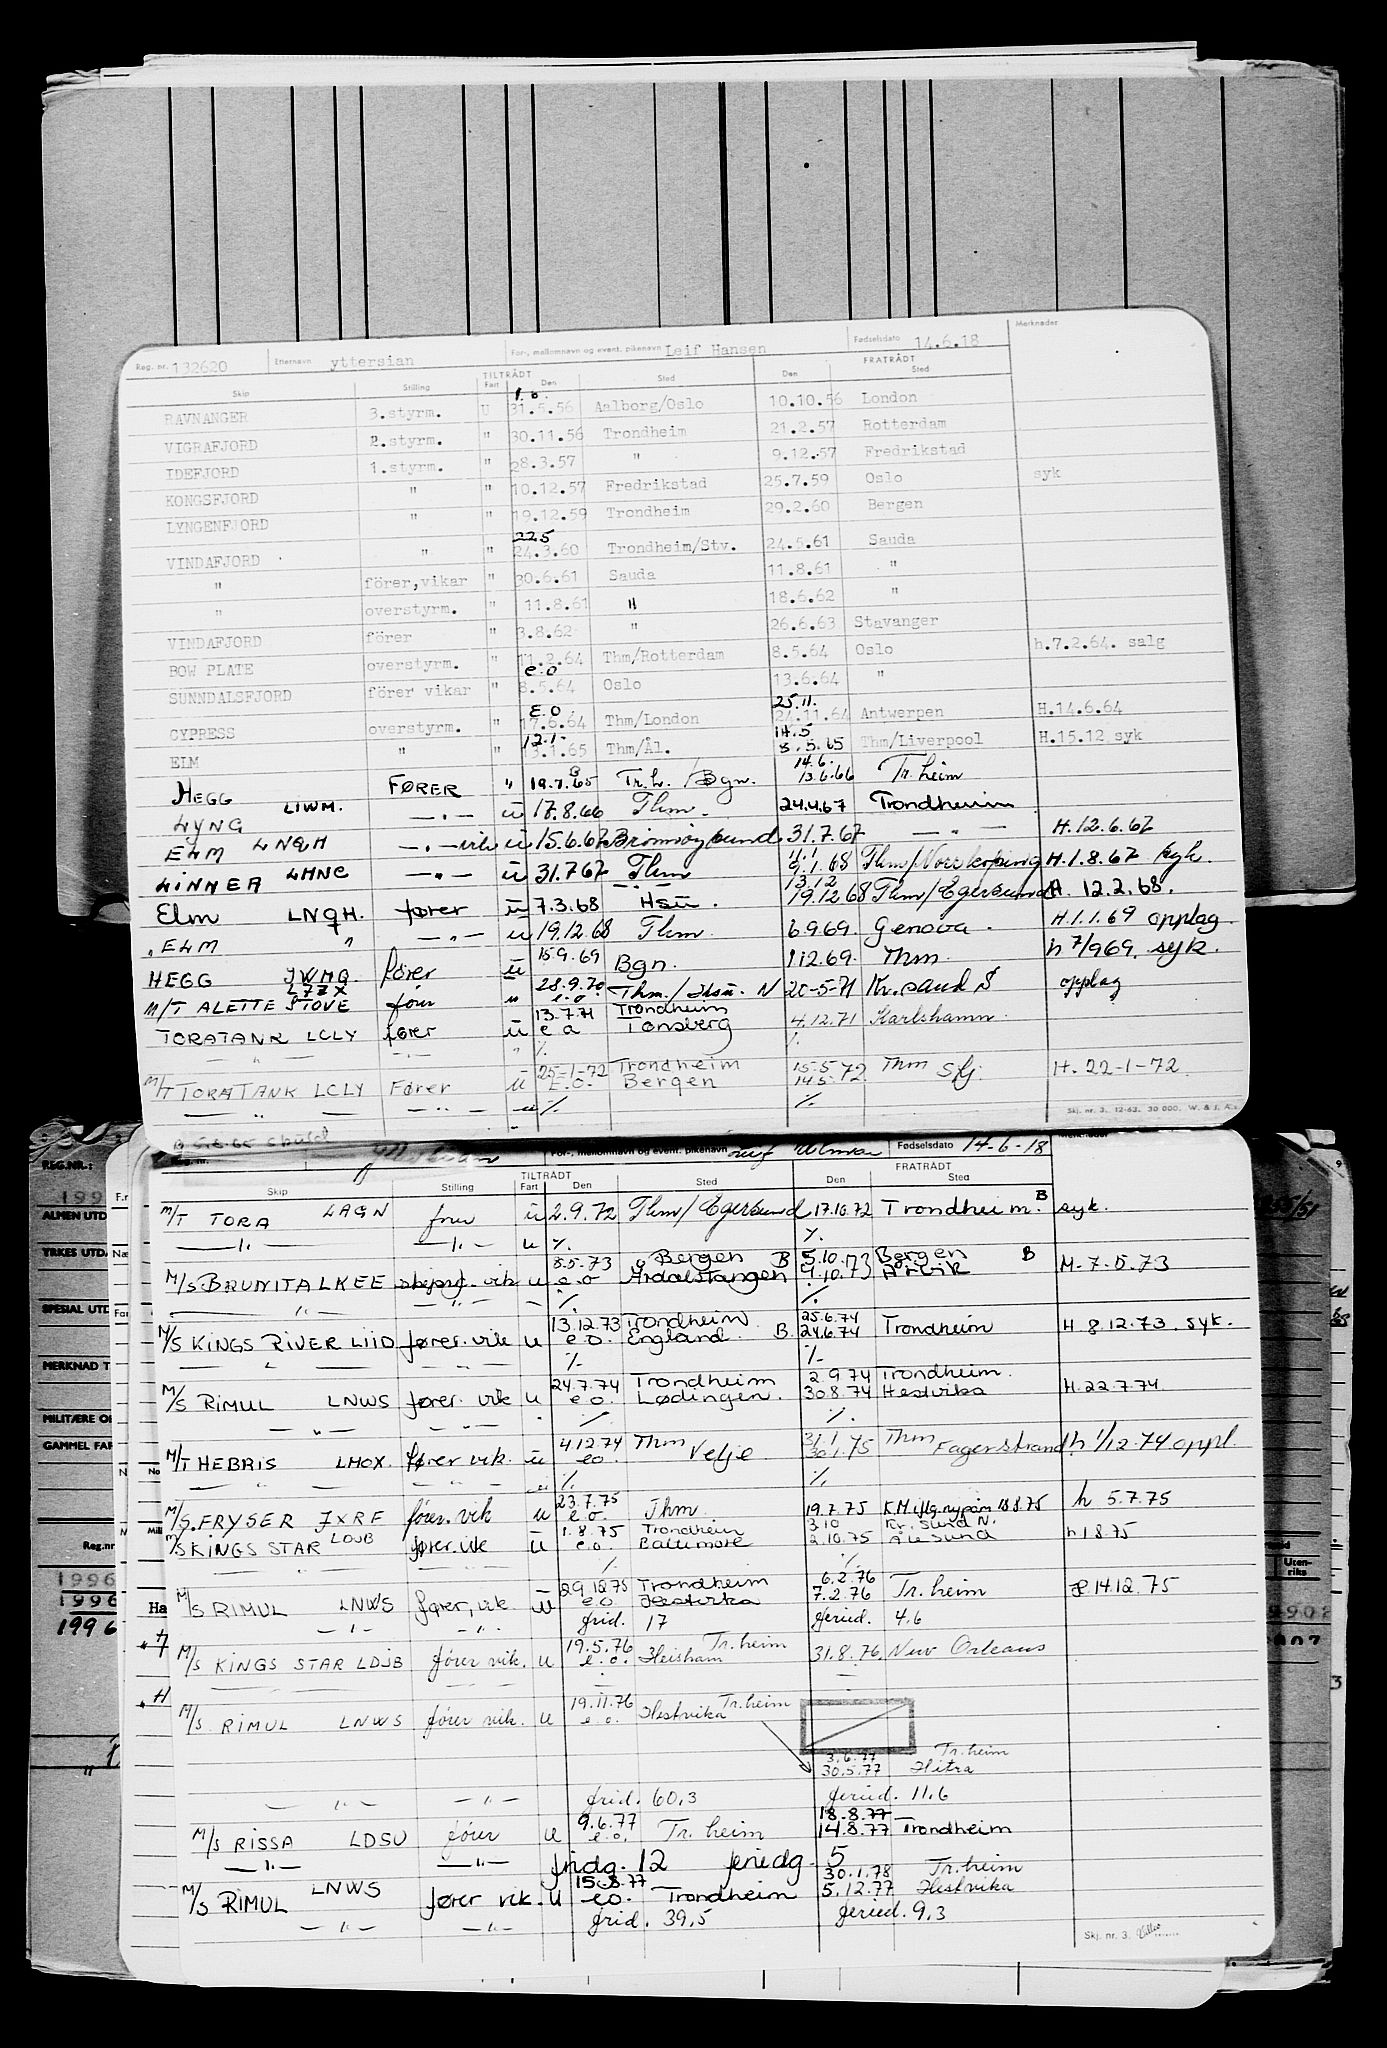 Reg. nr. 132620 Etternavn yttersian For-, mellomnavn og event. pikenavn Leif Hansen Fødselsdato 14.6.18 Merknader
TILTRÅDT FRATRÅDT
Skip Stilling Fart Den Sted Den Sted
1.6.
RAVNANGER 3.styrm. U 31.5.56 Aalborg/Oslo 10.10.56 London
VIGRAFJORD 2.styrm. " 30.11.56 Trondheim 21.2.57 Rotterdam
IDEFJORD 1.styrm. " 28.3.57 " 9.12.57 Fredrikstad
KONGSFJORD " " 10.12.57 Fredrikstad 25.7.59 Oslo syk
LYNGENFJORD " " 19.12.59 Trondheim 29.2.60 Bergen
22.5
VINDAFJORD " " 24.3.60 Trondheim/Stv. 24.5.61 Sauda
" förer,vikar " 30.6.61 Sauda 11.8.61 "
" overstyrm. " 11.8.61 " 18.6.62 "
VINDAFJORD förer " 3.8.62 " 26.6.63 Stavanger
BOW PLATE overstyrm. " 11.2.64 Thm/Rotterdam 8.5.64 Oslo h.7.2.64. salg
e.o
SUNNDALSFJORD förer vikar " 8.5.64 Oslo 13.6.64 "
E.O. 25.11.
CYPRESS overstyrm. " 17.6.64 Thm/London 24.11.64 Antwerpen H.14.6.64
12.1. 14.5
ELM " " 3.1.65 Thm/Ål. 8.5.65 Thm/Liverpool H.15.12 syk
14.6.
HEGG FØRER " 19.7.65 Tr.h./Bgn. 13.6.66 Tr.heim
LYNG LIWM. — " — u 17.8.66 Thm. 24.4.67 Trondheim
ELM LNQH — " — vik u 15.6.67 Brønnøysund 31.7.67 — " — H.12.6.67
4.1
LINNEA LHNC — " — u 31.7.67 Thm 9.1.68 Thm/Norrköping H.1.8.67 syk.
13.12
Elm LNQH. fører u 7.3.68 Hsu. 19.12.68 Thm/Egersund H. 12.2.68.
"ELM " — " — u 19.12.68 Thm. 6.9.69. Genova. H.1.1.69 opplag.
HEGG JWMQ fører u 15.9.69 Bgn. 1.12.69. Thm. h 7/9 69. syk.
LZZX 28.9.70
M/T ALETTE STOVE fører u e.o. Thm./Hsu. N 20-5-71 Kr.sand S opplag
13.7.71 Trondheim
TORATANK LCLY fører u e o Tønsberg 4.12.71 Karlshamn
— " — — " — " %. %.
25-1-72 Trondheim 15.5 Thm
M/T TORATANK LCLY Fører u E.O. Bergen 14.5.72 Sfj. H. 22-1-72.
— " — — " — u %. %.
Skj. nr. 3. 12-63. 30 000. W. & J. A.
Reg. nr. For-, mellomnavn og event. pikenavn Fødselsdato 14-6-18 Merknader
TILTRÅDT FRATRÅDT
Skip Stilling Fart Den Sted Den Sted
M/T TORA LAGN fører u 2.9.72 Thm/Egersund 17.10.72 Trondheim. B syk.
— " — — " — u %. %.
8.5.73 Bergen B 5.10.73 Bergen B
M/S BRUNITA LKEE vik u e.o Årdalstangen 4.10.73 H.7.5.73
— " — — " — %. %.
13.12.73 Trondheim. 25.6.74
M/S KINGS RIVER LIID fører. vik u e.o. England. B. 24.6.74 Trondheim H 8.12.73. syk.
%. %.
24.7.74 Trondheim 2.9.74 Trondheim.
M/S RIMUL LNWS fører. vik u e o. Lødingen. 30.8.74 Hestvika H.22.7.74.
— " — — " — %. %.
4.12.74 Thm 31.1 Thm
M/T HEBRIS LMOX. fører vik. u e.o. Vejle. 30.1.75 Fagerstrand h 1/12.74 oppl.
— " — u %. %.
23.7.75
M/S. FRYSER JXRF fører. vik u e.o. Thm. 19.7.75 h 5.7.75
1.8.75 Trondheim 3.10 Kr. Sund N.
M/S KINGS STAR LDJB fører. vik u e.o. Baltimore 2.10.75 Ålesund h 1.8.75
%. %.
29.12.75 Trondheim 6.2.76
M/S RIMUL LNWS fører, vik u e o Hestvika 7.2.76 Tr.heim H.14.12.75
— " — — " — frid. 17 feried. 4.6
19.5.76 Tr.heim
M/S KINGS STAR LDJB fører vik. u e.o. Heisham 31.8.76. New Orleans
19.11.76 Tr.heim
M/S. RIMUL LNWS fører vik. u e.o. Hestvika
3.6.77 Tr.heim
30.5.77 Hitra
— " — — " — frid. 60,3 feried. 11,6
9.6.77 18.8.77
M/S RISSA LDSU fører u e.o. Tr.heim 14.8.77 Trondheim
— " — — " — fridg. 12 feriedg. 5
15.8.77 30.1.78 Tr.heim
M/S RIMUL LNWS fører vik. u e.o. Trondheim 5.12.77 Hestvika
— " — — " — frid. 39,5 feried. 9,3
Skj. nr. 3.
REG.NR.:
199
ALMEN UTD
YRKES UTDA
SPESIAL UTD
MERKNAD T
MILITÆRE O
GAMMEL FAR
Reg.nr
1996
1996
1996
Uten-
riks